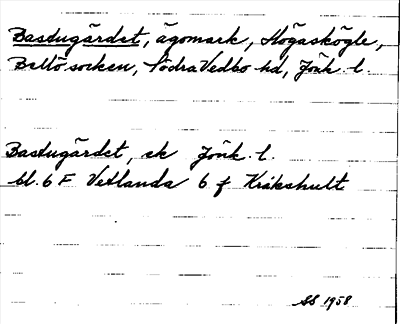 Bastugärdet, ägomark, Högaskögle,
Bellö socken, Södra Vedbo hd, Jönk. l.
Bastugärdet, ek Jönk. l.
bl. 6 F Vetlanda 6 f Kråkshult
SS 1958